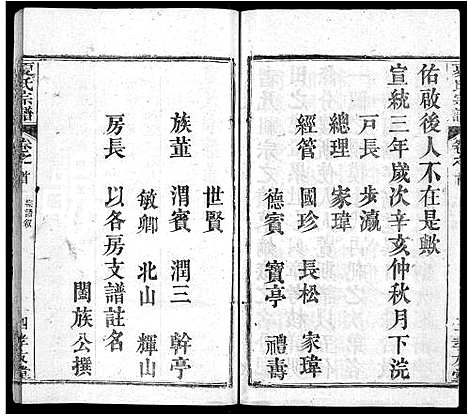 佑啟後人不在是歟
宣統三年歲次辛亥仲秋月下浣
戶長　步瀛
總理　家瑋
經管　國珍　長松　家瑋
德賓　寶亭　禮壽
世賢
族董　渭賓　潤三　幹亭
敏卿　北山　輝山
房長　以各房支譜註名
闔族公撰
夏氏宗譜　卷之首　宗譜叙